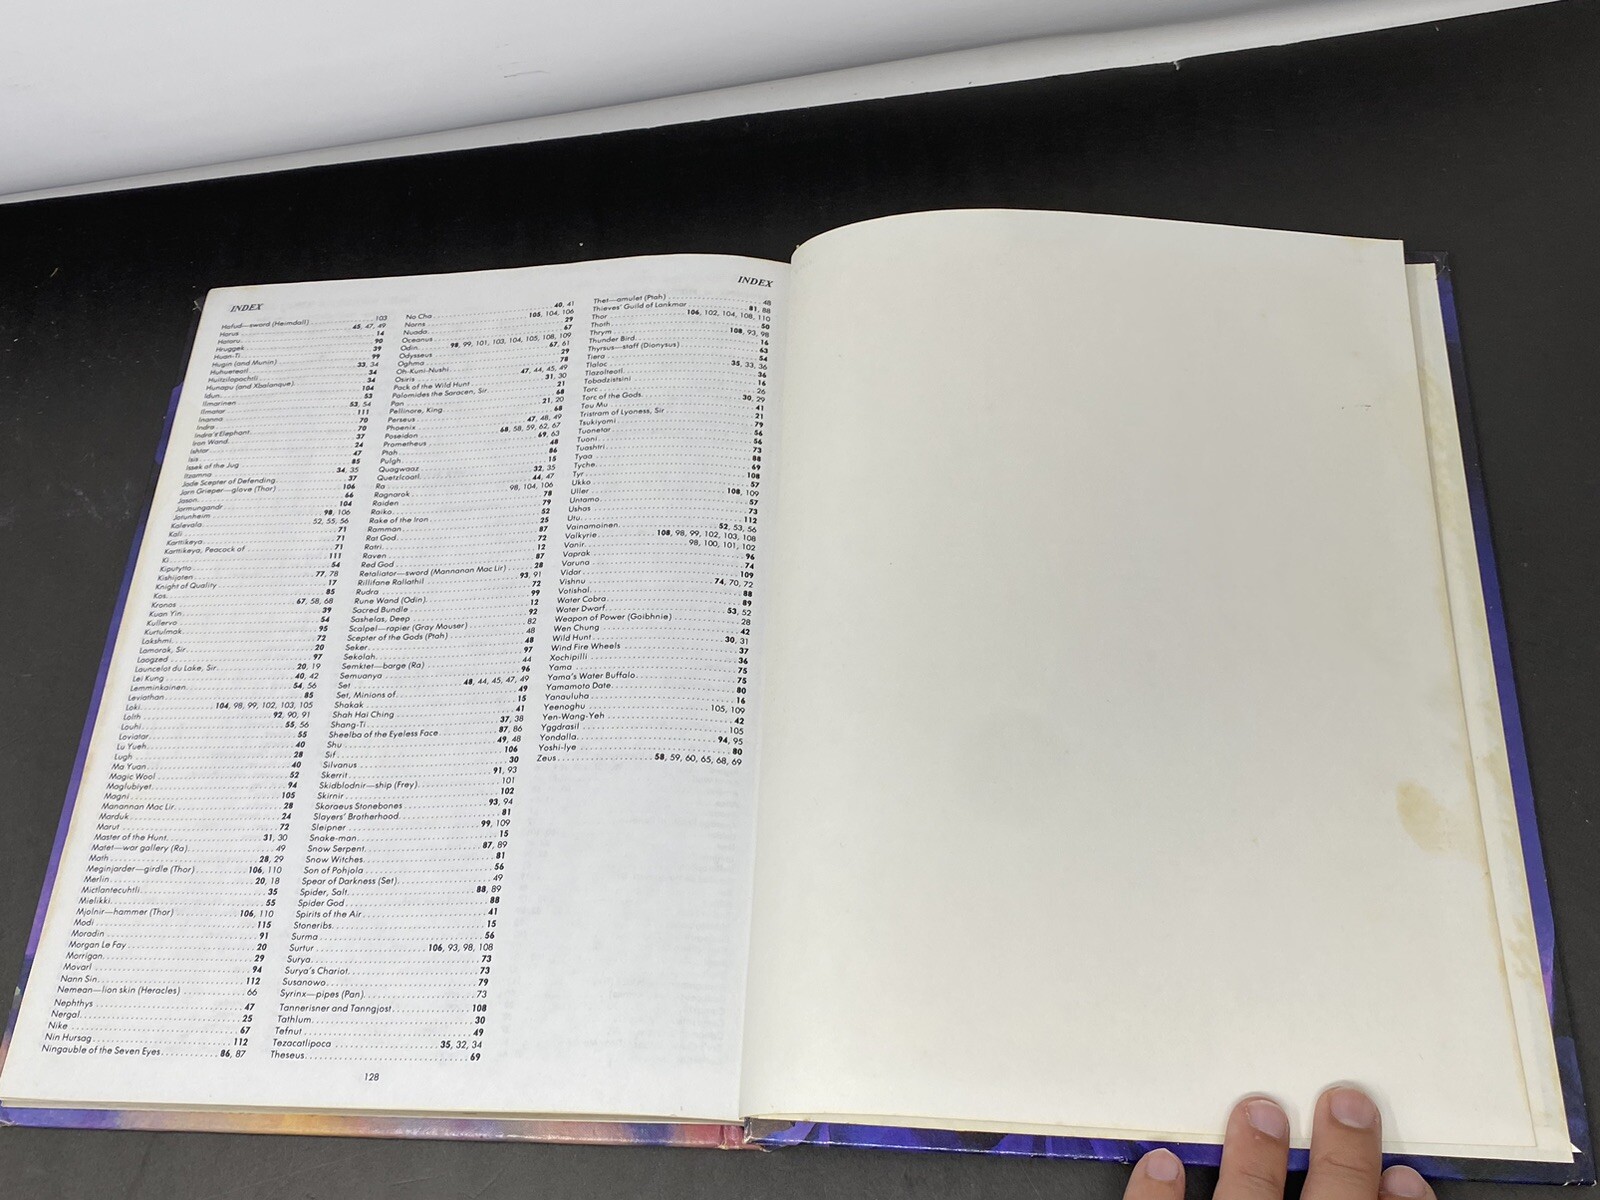 INDEX
Hofud—sword (Heimdall) 103
Horus 45, 47, 49
Hotoru 14
Hruggek 90
Huan-Ti 39
Hugin (and Munin) 99
Huhueteotl 33, 34
Huitzilopochtli 34
Hunapu (and Xbalanque) 34
Idun 104
Ilmarinen 53
Ilmatar 53, 54
Inanna 111
Indra 70
Indra's Elephant 70
Iron Wand 37
Ishtar 24
Isis 47
Issek of the Jug 85
Itzamna 34, 35
Jade Scepter of Defending 37
Jarn Grieper—glove (Thor) 106
Jason 66
Jormungandr 104
Jotunheim 98, 106
Kalevala 52, 55, 56
Kali 71
Karttikeya 71
Karttikeya, Peacock of 71
Ki 111
Kiputytto 54
Kishijoten 77, 78
Knight of Quality 17
Kos 85
Kronos 67, 58, 68
Kuan Yin 39
Kullervo 54
Kurtulmak 95
Lakshmi 72
Lamorak, Sir 20
Laogzed 97
Launcelot du Lake, Sir 20, 19
Lei Kung 40, 42
Lemminkainen 54, 56
Leviathan 85
Loki 104, 98, 99, 102, 103, 105
Lolth 92, 90, 91
Louhi 55, 56
Loviatar 55
Lu Yueh 40
Lugh 28
Ma Yuan 40
Magic Wool 52
Maglubiyet 94
Magni 105
Manannan Mac Lir 28
Marduk 24
Marut 72
Master of the Hunt 31, 30
Matet—war gallery (Ra) 49
Math 28, 29
Meginjarder—girdle (Thor) 106, 110
Merlin 20, 18
Mictlantecuhtli 35
Mielikki 55
Mjolnir—hammer (Thor) 106, 110
Modi 115
Moradin 91
Morgan Le Fay 20
Morrigan 29
Movarl 94
Nann Sin 112
Nemean—lion skin (Heracles) 66
Nephthys 47
Nergal 25
Nike 67
Nin Hursag 112
Ningauble of the Seven Eyes 86, 87
No Cha 40, 41
Norns 105, 104, 106
Nuada 29
Oceanus 67
Odin 98, 99, 101, 103, 104, 105, 108, 109
Odysseus 67, 61
Oghma 29
Oh-Kuni-Nushi 78
Osiris 47, 44, 45, 49
Pack of the Wild Hunt 31, 30
Palomides the Saracen, Sir 21
Pan 68
Pellinore, King 21, 20
Perseus 68
Phoenix 47, 48, 49
Poseidon 68, 58, 59, 62, 67
Prometheus 69, 63
Ptah 48
Pulgh 86
Quagwaaz 15
Quetzlcoatl 32, 35
Ra 44, 47
Ragnarok 98, 104, 106
Raiden 78
Raiko 79
Rake of the Iron 52
Ramman 25
Rat God 87
Ratri 72
Raven 12
Red God 87
Retaliator—sword (Mannanan Mac Lir) 28
Rillifane Rallathil 93, 91
Rudra 72
Rune Wand (Odin) 99
Sacred Bundle 12
Sashelas, Deep 92
Scalpel—rapier (Gray Mouser) 82
Scepter of the Gods (Ptah) 48
Seker 48
Sekolah 97
Semktet—barge (Ra) 44
Semuanya 96
Set 48, 44, 45, 47, 49
Set, Minions of 49
Shakak 15
Shah Hai Ching 41
Shang-Ti 37, 38
Sheelba of the Eyeless Face 87, 86
Shu 49, 48
Sif 106
Silvanus 30
Skerrit 91, 93
Skidblodnir—ship (Frey) 101
Skirnir 102
Skoraeus Stonebones 93, 94
Slayers' Brotherhood 81
Sleipner 99, 109
Snake-man 15
Snow Serpent 87, 89
Snow Witches 81
Son of Pohjola 56
Spear of Darkness (Set) 49
Spider, Salt 88, 89
Spider God 88
Spirits of the Air 41
Stoneribs 15
Surma 56
Surtur 106, 93, 98, 108
Surya 73
Surya's Chariot 73
Susanowo 79
Syrinx—pipes (Pan) 73
Tannerisner and Tanngjost 108
Tathlum 30
Tefnut 49
Tezacatlipoca 35, 32, 34
Theseus 69
INDEX
Thet—amulet (Ptah) 48
Thieves' Guild of Lankmar 81, 88
Thor 106, 102, 104, 108, 110
Thoth 50
Thrym 108, 93, 98
Thunder Bird 16
Thyrsus—staff (Dionysus) 63
Tiera 54
Tlaloc 35, 33, 36
Tlazolteotl 36
Tobadzistsini 16
Torc 26
Torc of the Gods 30, 29
Tou Mu 41
Tristram of Lyoness, Sir 21
Tsukiyomi 79
Tuonetar 56
Tuoni 56
Tvashtri 73
Tyaa 88
Tyche 69
Tyr 108
Ukko 57
Uller 108, 109
Untamo 57
Ushas 73
Utu 112
Vainamoinen 52, 53, 56
Valkyrie 108, 98, 99, 102, 103, 108
Vanir 98, 100, 101, 102
Vaprak 96
Varuna 74
Vidar 109
Vishnu 74, 70, 72
Votishal 88
Water Cobra 89
Water Dwarf 53, 52
Weapon of Power (Goibhnie) 28
Wen Chung 42
Wild Hunt 30, 31
Wind Fire Wheels 37
Xochipilli 36
Yama 75
Yama's Water Buffalo 75
Yamamoto Date 80
Yanauluha 16
Yeenoghu 105, 109
Yen-Wang-Yeh 42
Yggdrasil 105
Yondalla 94, 95
Yoshi-Iye 80
Zeus 58, 59, 60, 65, 68, 69
128